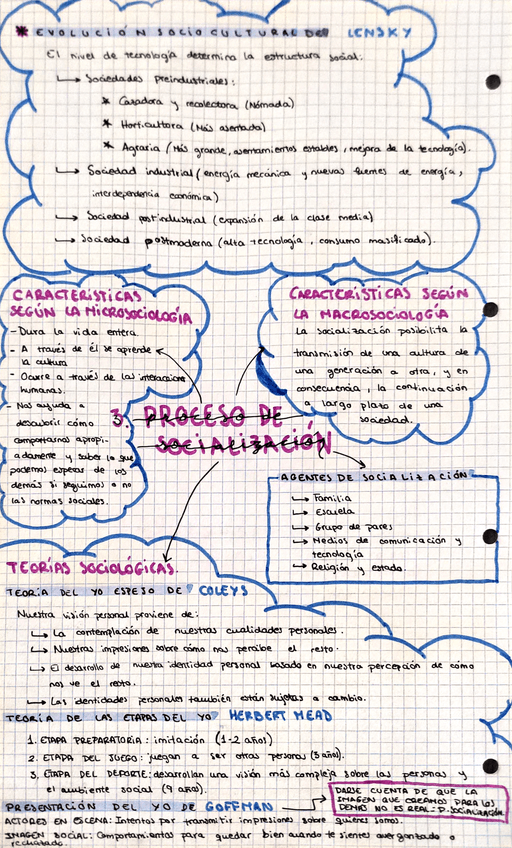 * EVOLUCIÓN SOCIOCULTURAL DE LENSKY
El nivel de tecnología determina la estructura social:
↳ Sociedades preindustriales:
* Cazadora y recolectora (Nómada)
* Horticultora (Más asentada)
* Agraria (Más grande, asentamientos estables, mejora de la tecnología).
↳ Sociedad industrial (energía mecánica y nuevas fuentes de energía,
interdependencia económica)
↳ Sociedad postindustrial (expansión de la clase media)
↳ Sociedad postmoderna (alta tecnología, consumo masificado).
CARACTERÍSTICAS
SEGÚN LA MICROSOCIOLOGÍA
- Dura la vida entera.
- A través de él se aprende
la cultura
- Ocurre a través de las interacciones
humanas.
- Nos ayuda a
descubrir cómo
comportarnos apropi-
adamente y saber lo que
podemos esperar de los
demás si seguimos o no
las normas sociales.
CARACTERÍSTICAS SEGÚN
LA MACROSOCIOLOGÍA
La socialización posibilita la
transmisión de una cultura de
una generación a otra, y en
consecuencia, la continuación
a largo plazo de una
sociedad.
3. PROCESO DE
SOCIALIZACIÓN
AGENTES DE SOCIALIZACIÓN
↳ Familia
↳ Escuela
↳ Grupo de pares
↳ Medios de comunicación y
tecnología
↳ Religión y estado.
TEORÍAS SOCIOLÓGICAS
TEORÍA DEL YO ESPEJO DE COLEYS
Nuestra visión personal proviene de:
↳ La contemplación de nuestras cualidades personales.
↳ Nuestras impresiones sobre cómo nos percibe el resto.
↳ El desarrollo de nuestra identidad personal basado en nuestra percepción de cómo
nos ve el resto.
↳ Las identidades personales también están sujetas a cambio.
TEORÍA DE LAS ETAPAS DEL YO HERBERT MEAD
1. ETAPA PREPARATORIA: imitación (1-2 años)
2. ETAPA DEL JUEGO: juegan a ser otras personas (3 años).
3. ETAPA DEL DEPORTE: desarrollan una visión más compleja sobre las personas y
el ambiente social (9 años).
PRESENTACIÓN DEL YO DE GOFFMAN
DARSE CUENTA DE QUE LA
IMAGEN QUE CREAMOS PARA LOS
DEMÁS NO ES REAL: D. SOCIALIZACIÓN
ACTORES EN ESCENA: Intentos por transmitir impresiones sobre quienes somos.
IMAGEN SOCIAL: Comportamientos para quedar bien cuando te sientes avergonzado o
rechazado.